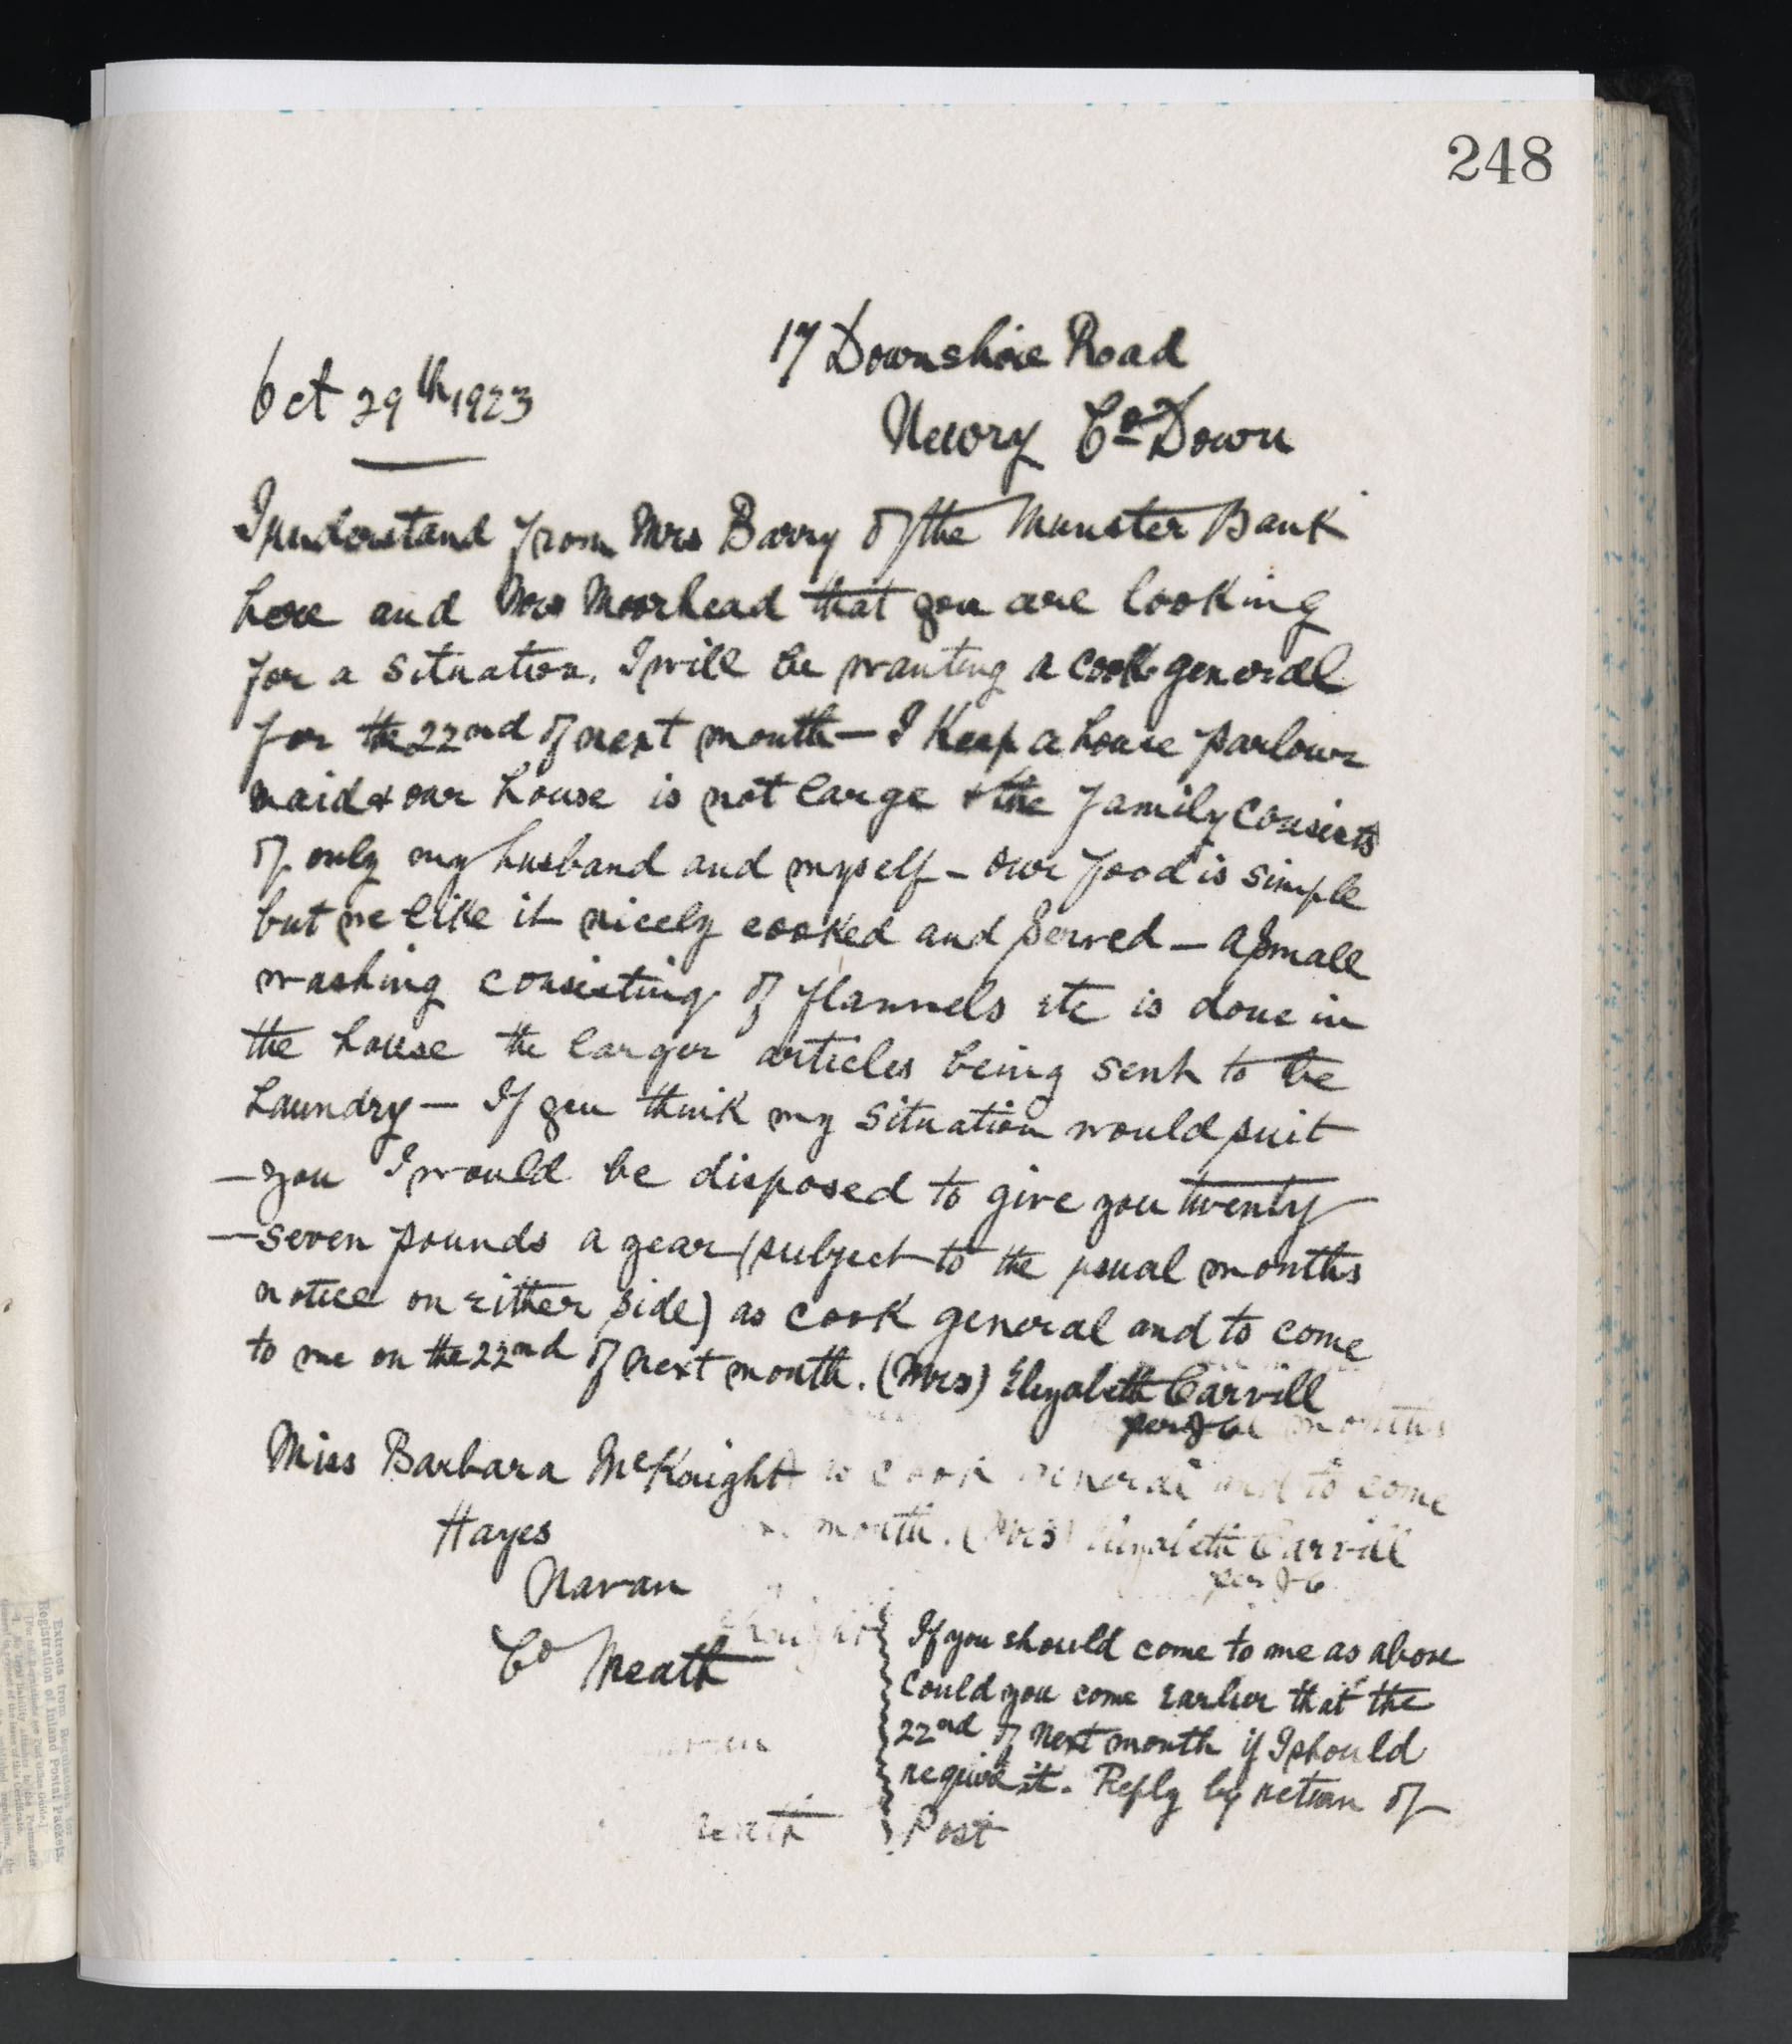 248
17 Downshire Road
Oct 29th 1923
Newry Co Down
I understand from Mrs Barry of the Munster Bank
here and Mrs Moorhead that you are looking
for a situation. I will be wanting a cook general
for the 22nd of next month — I Keep a house parlour
maid & our house is not large & the family consists
of only my husband and myself — our food is simple
but we like it nicely cooked and served — a small
washing consisting of flannels etc is done in
the house the larger articles being sent to the
Laundry — If you think my situation would suit
— you I would be disposed to give you twenty
— seven pounds a year (subject to the usual months
notice on either side) as cook general and to come
to me on the 22nd of next month. (Mrs) Elizabeth Carvill
per
months
Miss Barbara McKnight
cook general and to come
Hayes
month. (Mrs) Elizabeth Carvill
per
Navan
Co Meath
If you should come to me as above
could you come earlier that the
22nd of next month if I should
require it. Reply by return of
Post
Extracts from Regulations for
Registration of Inland Postal Packets.